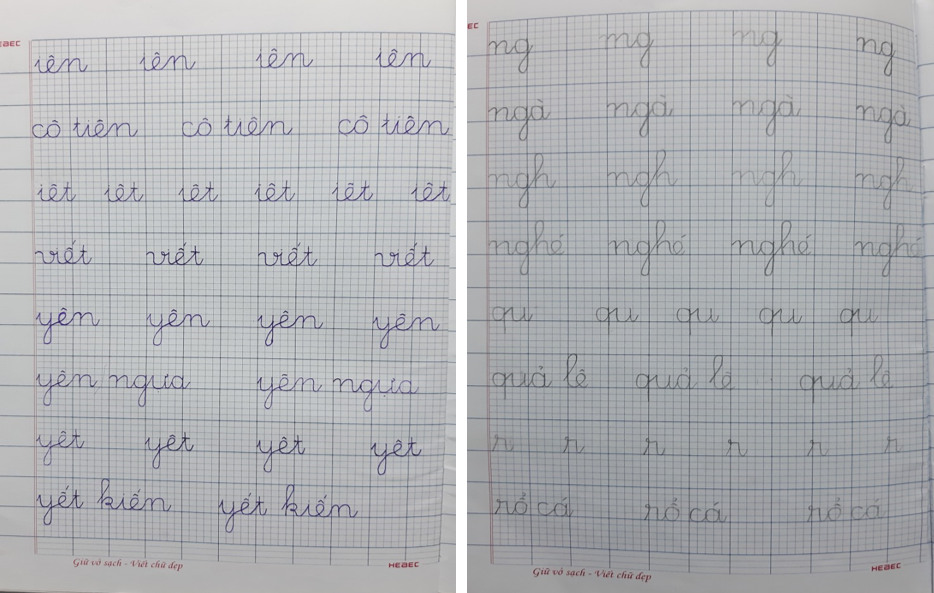 HEBEC
iên iên iên iên
cô tiên cô tiên cô tiên
iêt iêt iêt iêt iêt iêt
viết viết viết viết
yên yên yên yên
yên ngựa yên ngựa
yêt yêt yêt yêt
yết kiến yết kiến
Giữ vở sạch - Viết chữ đẹp
HEBEC
EC
ng ng ng ng
ngà ngà ngà ngà
ngh ngh ngh ngh
nghé nghé nghé nghé
qu qu qu qu qu
quả lê quả lê quả lê
r r r r r r
rổ cá rổ cá rổ cá
Giữ vở sạch - Viết chữ đẹp
HEBEC